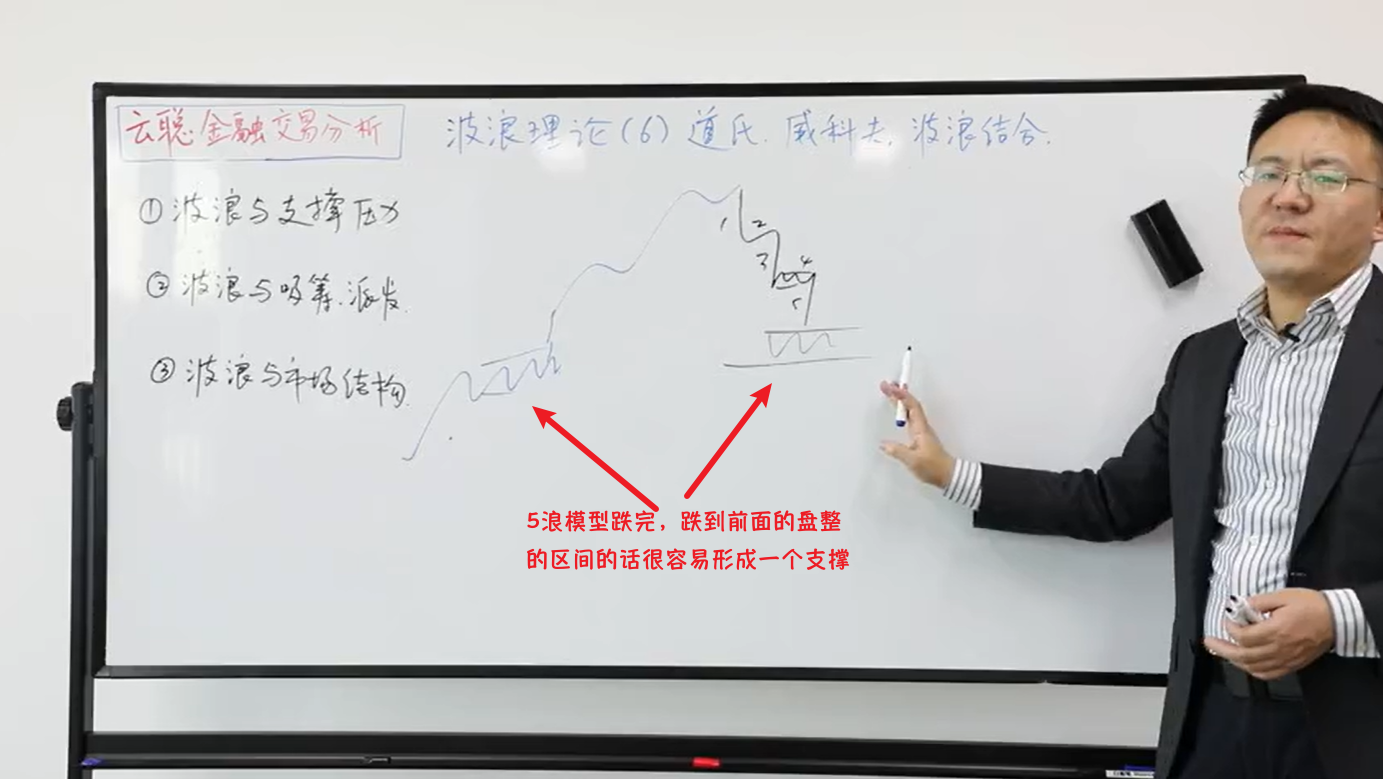 云聪金融交易分析
波浪理论(6)道氏.威科夫.波浪结合.
①波浪与支撑压力
②波浪与吸筹.派发.
③波浪与市场结构.
1
2
3
4
5
5浪模型跌完，跌到前面的盘整
的区间的话很容易形成一个支撑